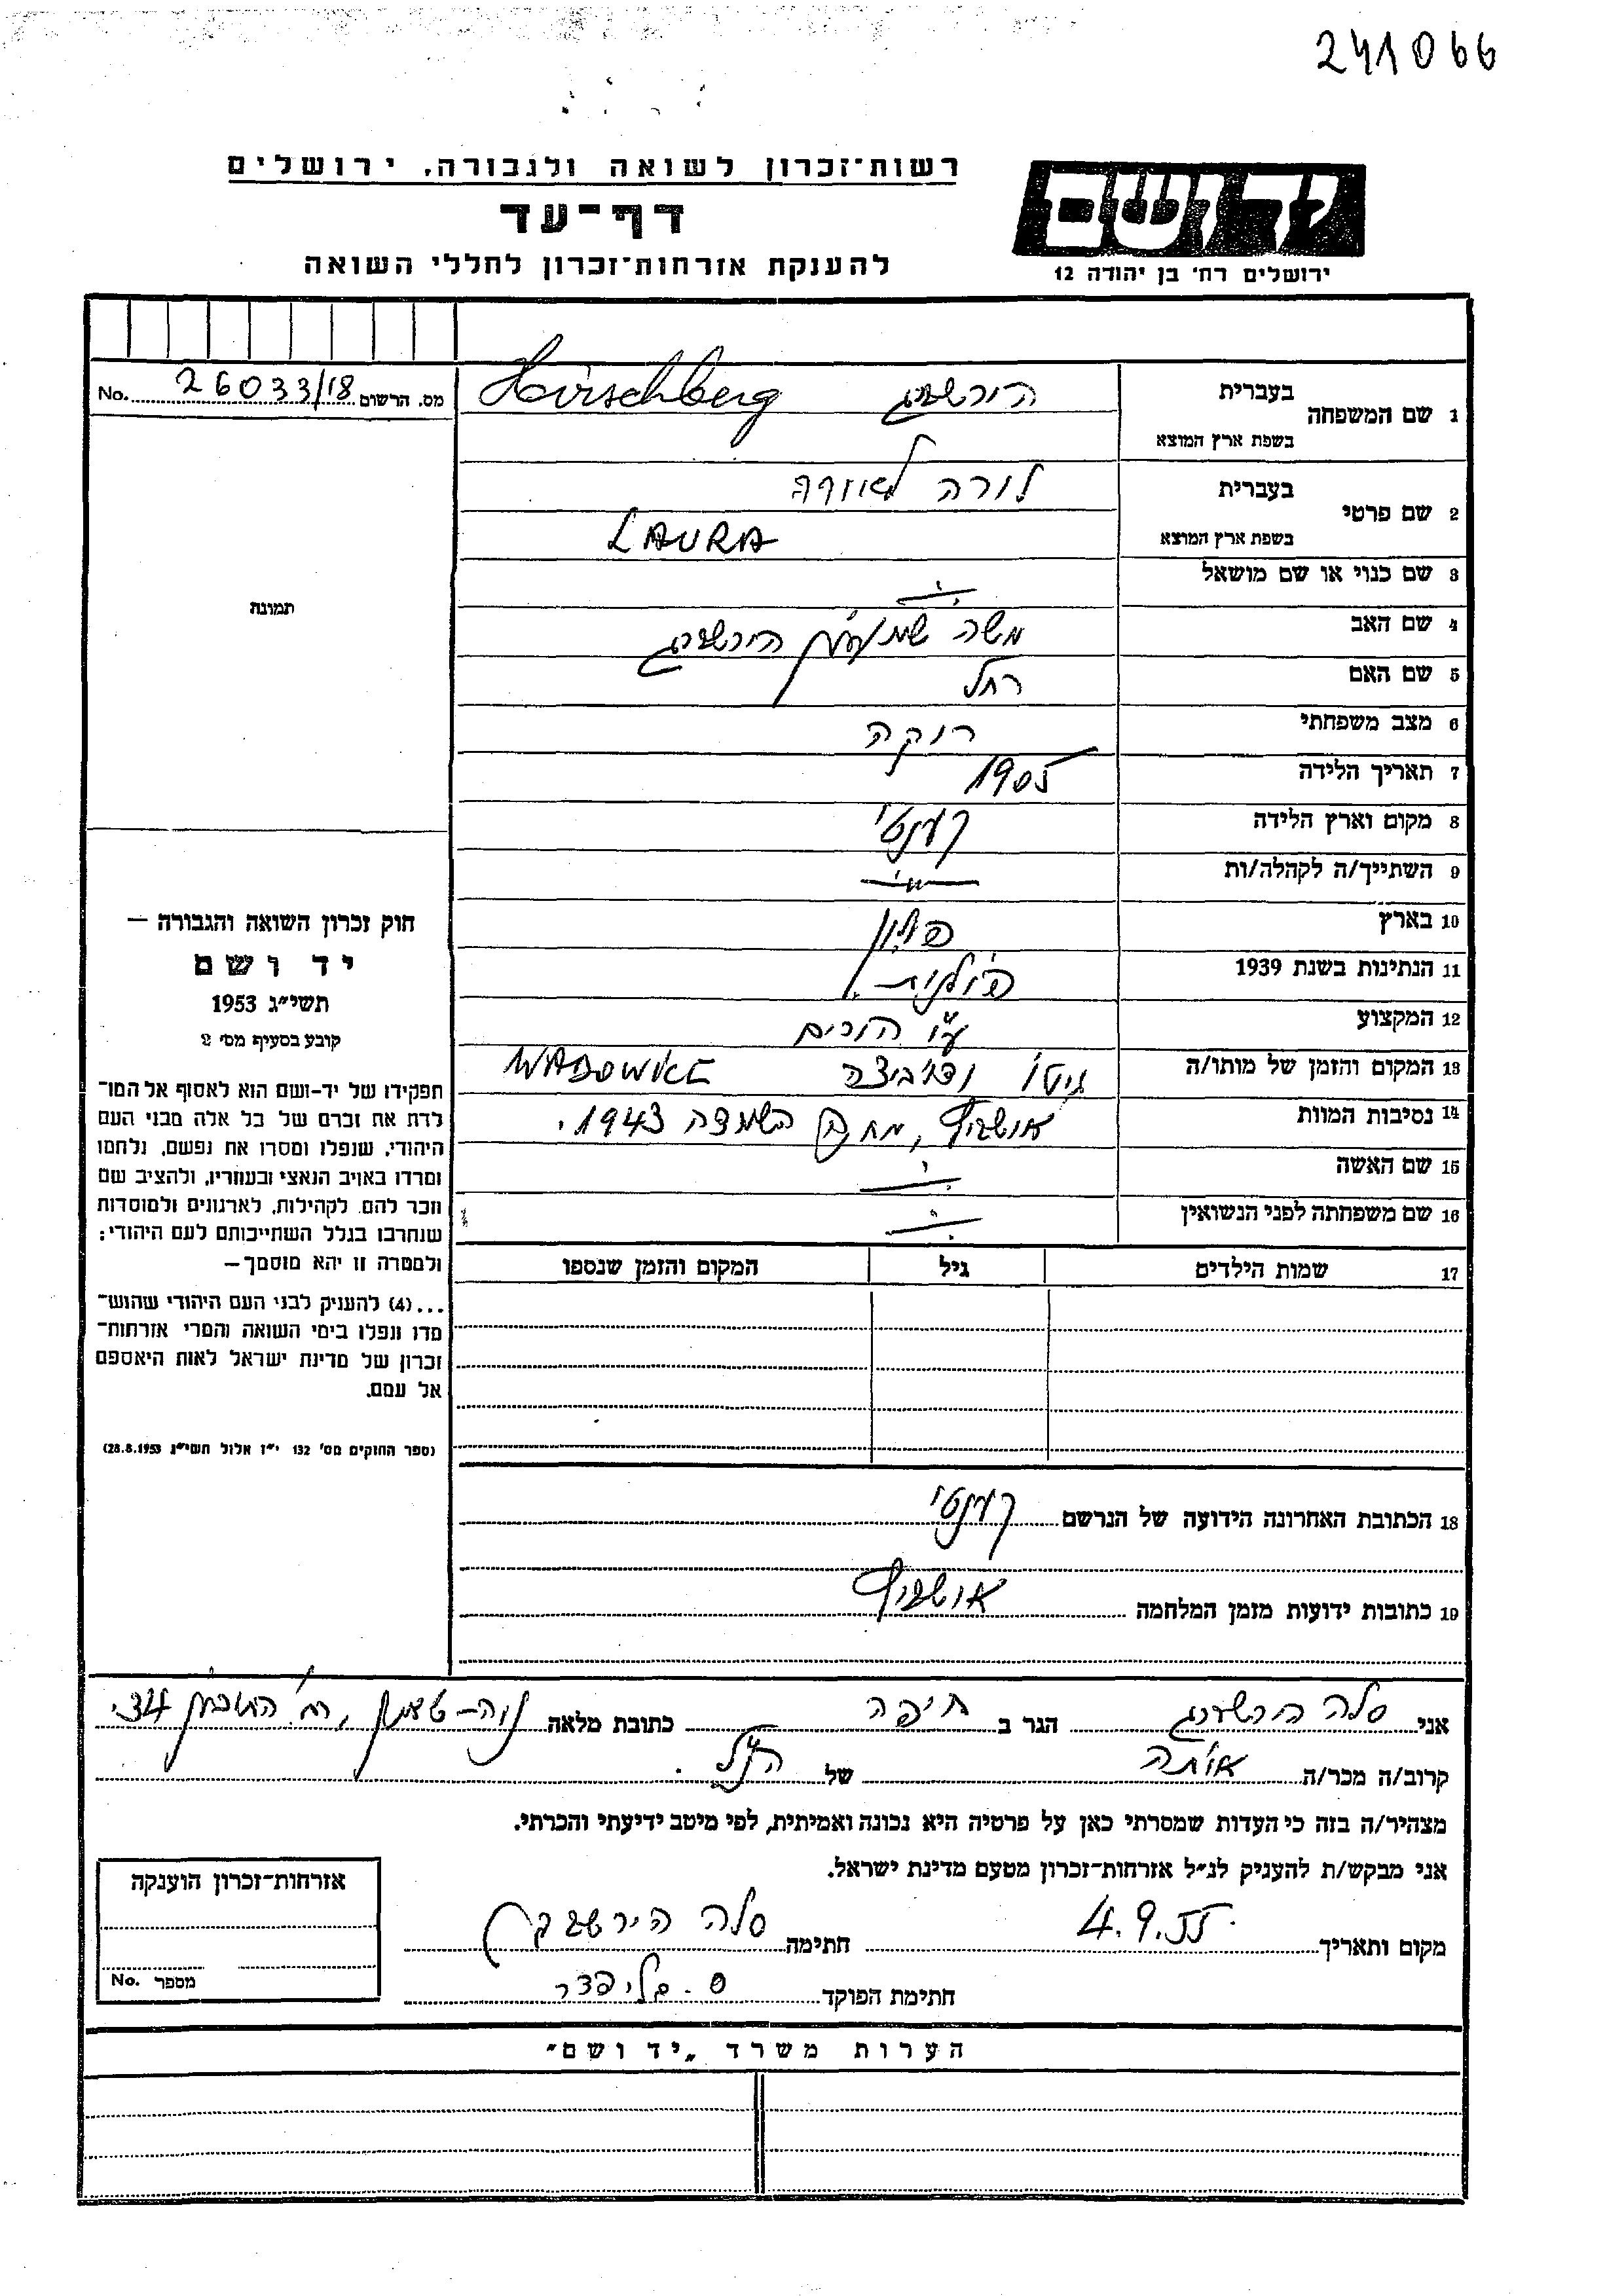 241066
רשות־זכרון לשואה ולגבורה, ירושלים
יד ושם
דף־עד
להענקת אזרחות־זכרון לחללי השואה
ירושלים רח' בן יהודה 12
מס. הרשום 26033/18 No.
1 שם המשפחה בעברית הירשברג Hirschberg
בשפת ארץ המוצא
2 שם פרטי בעברית לורה לאורה
בשפת ארץ המוצא LAURA
3 שם כנוי או שם מושאל
4 שם האב משה שמעון הירשברג
5 שם האם רחל
6 מצב משפחתי רוקה
7 תאריך הלידה 1905
8 מקום וארץ הלידה קענטי
9 השתייך/ה לקהלה/ות
10 בארץ פולין
11 הנתינות בשנת 1939 פולנית.
12 המקצוע ע"ו הורים
13 המקום והזמן של מותו/ה גיטו ודוביצה WADOWICE
14 נסיבות המוות אושביץ, מחנה השמדה 1943.
15 שם האשה
16 שם משפחתה לפני הנשואין
17 שמות הילדים גיל המקום והזמן שנספו
תמונה
חוק זכרון השואה והגבורה –
יד ושם
תשי"ג 1953
קובע בסעיף מס' 2
תפקידו של יד־ושם הוא לאסוף אל המו־
לדת את זכרם של כל אלה מבני העם
היהודי, שנפלו ומסרו את נפשם, נלחמו
ומרדו באויב הנאצי ובעוזריו, ולהציב שם
וזכר להם, לקהילות, לארגונים ולמוסדות
שנחרבו בגלל השתייכותם לעם היהודי;
ולמטרה זו יהא מוסמך –
...(4) להעניק לבני העם היהודי שהוש־
מדו ונפלו בימי השואה והמרי אזרחות־
זכרון של מדינת ישראל לאות היאספם
אל עמם.
(ספר החוקים מס' 132 י"ז אלול תשי"ג 28.8.1953)
18 הכתובת האחרונה הידועה של הנרשם קענטי
19 כתובות ידועות מזמן המלחמה אושביץ
אני סלה הירשברג הגר ב חיפה כתובת מלאה נוה־שאנן, רח' 34.
קרוב/ה מכר/ה אותה של הנ"ל.
מצהיר/ה בזה כי העדות שמסרתי כאן על פרטיה היא נכונה ואמיתית, לפי מיטב ידיעתי והכרתי.
אני מבקש/ת להעניק לנ"ל אזרחות־זכרון מטעם מדינת ישראל.
מקום ותאריך 4.9.55 חתימה סלה הירשברג
חתימת הפוקד
אזרחות־זכרון הוענקה
מספר No.
הערות משרד „יד ושם"